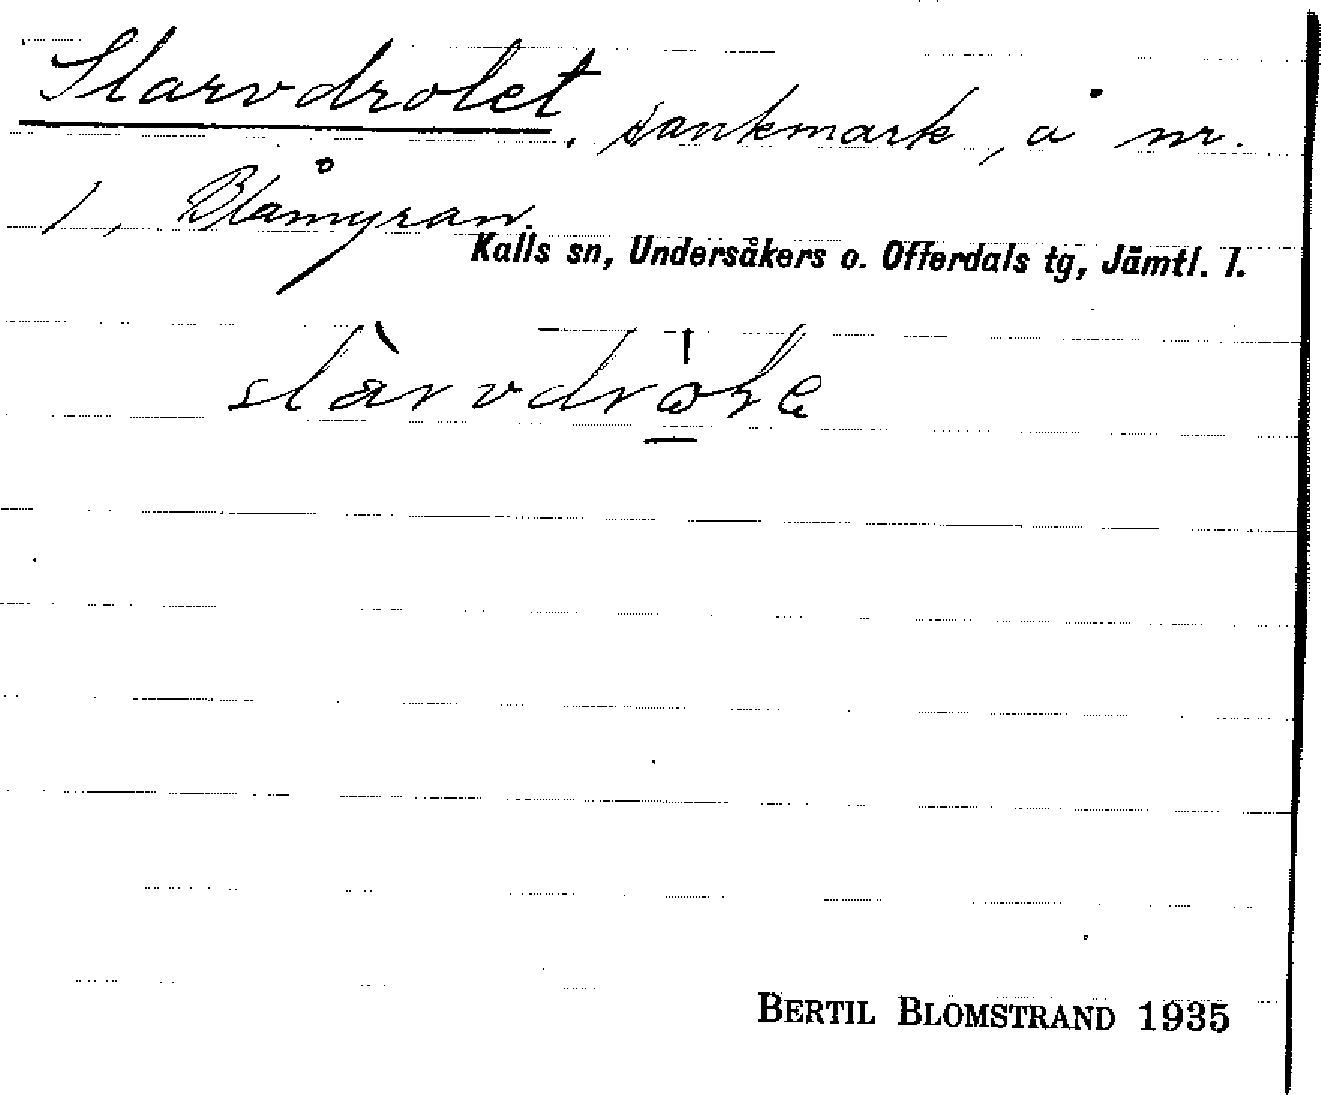 Slarvdrolet, sankmark, å nr.
1, Blåmyran.
Kalls sn, Undersåkers o. Offerdals tg, Jämtl. l.
BERTIL BLOMSTRAND 1935